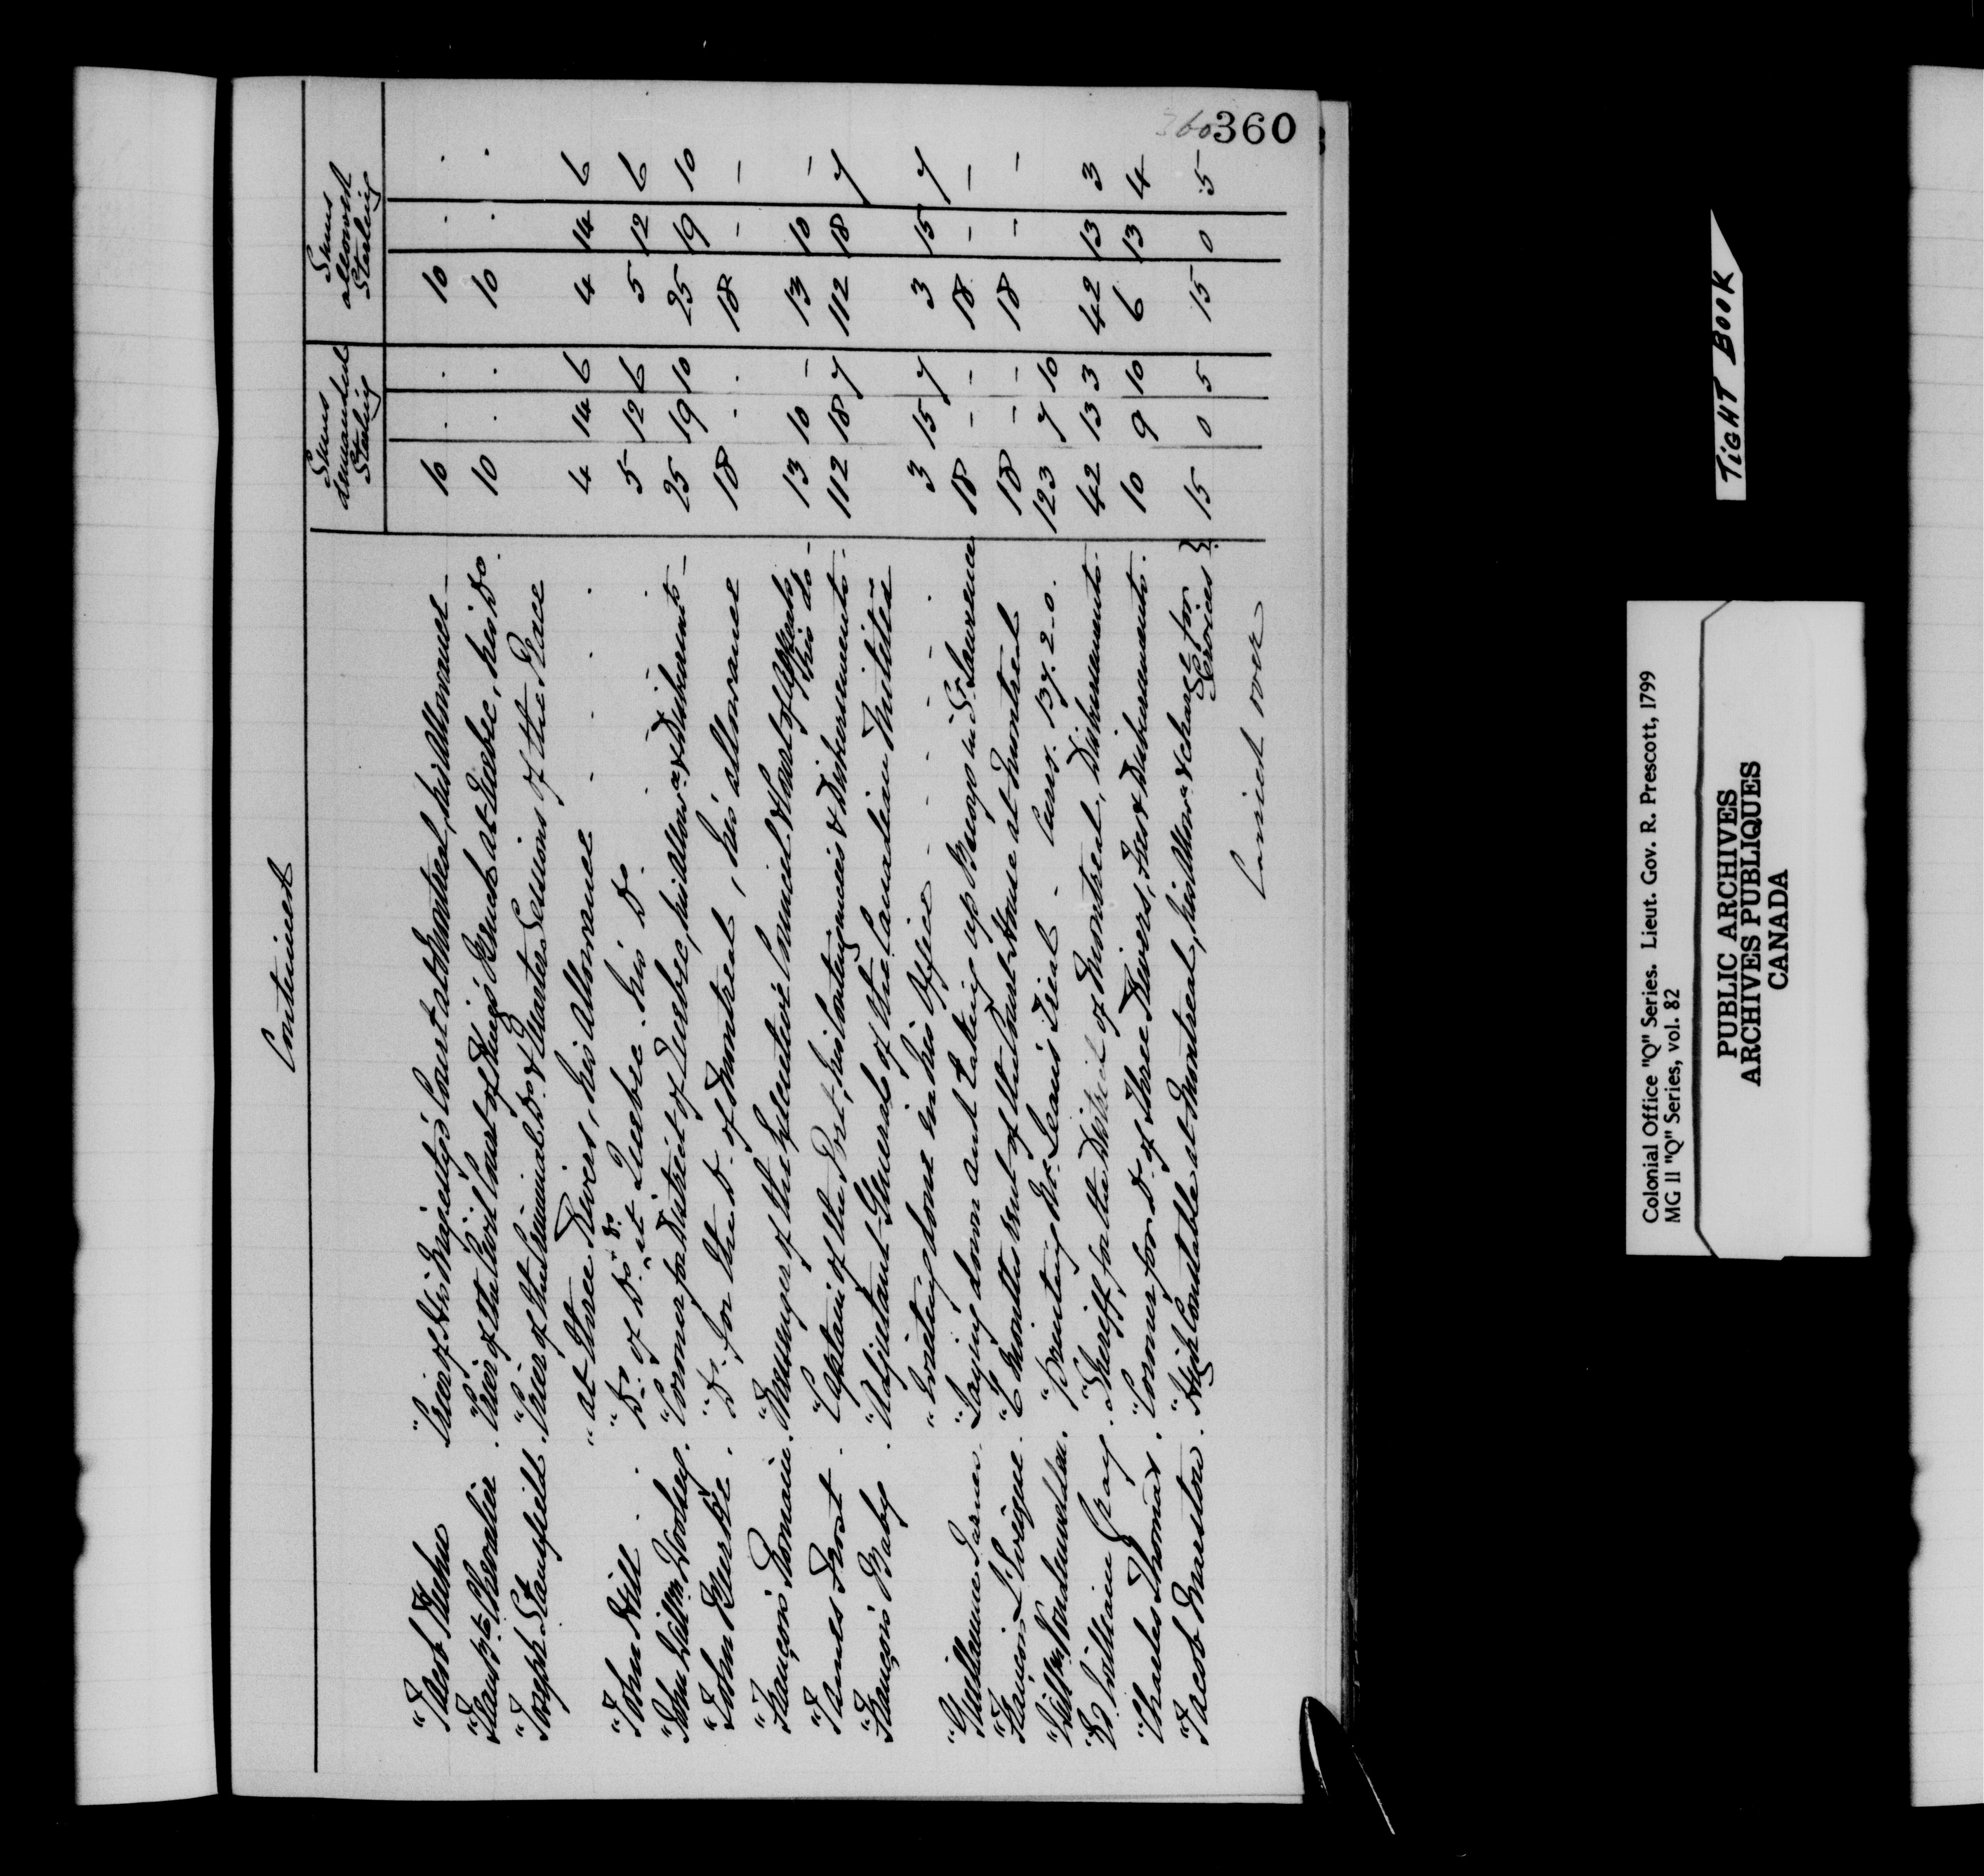 360 360
Continued
Sums demanded Sterling
Sums allowed Sterling
"Jacob Kuhn "Crier of His Majesty's Court at Montreal, his Allowance — 10 . . 10 . .
"Jean Bte Chevalier . "Crier of the Civil Court of King's Bench at Quebec, his Do. 10 . . 10 . .
"Joseph Stansfield . "Crier of the Criminal Do. & Quarter Sessions of the Peace
" at Three Rivers, his Allowance - - - . 4 14 6 4 14 6
"John Hill . " Do. of Do. & Do. at Quebec. his Do. . 5 12 6 5 12 6
"John Willm Woolsey. "Coroner for District of Quebec, his Allowce & Disburements — 25 19 10 25 19 10
"John Burke . " Do. for the Do. of Montreal, his allowance 18 . . 18 - -
"François Romain. "Messenger of the Executive Council & Court of Appeals, his do - 13 10 - 13 10 -
"James Frost . "Captain of the Port, his Contingencies & Disbursements - 112 18 7 112 18 7
"François Baby . "Adjutant General of the Canadian Militia
" writing done in his Office - - - - - . 3 15 7 3 15 7
"Guillaume "Laying down and taking up Buoys in St. Laurence 18 - - 18 - -
"François L'Evesque . "6 months rent of the Court House at Montreal 18 - - 18 - -
"Willm Vondenvelden. "Printing McLean's Trial - Curry. 137. 2. 0. 123 7 10
"Do. William Gray . "Sheriff for the District of Montreal, Disbursements - 42 13 3 42 13 3
"Charles Thomas . "Coroner for Do. of Three Rivers, Fees & Disbursements. 10 9 10 6 13 4
"Jacob Marston . "High Constable at Montreal, his Allowce & charge for Services } 15 0 5 15 0 5
Carried over
TIGHT BOOK
Colonial Office "Q" Series. Lieut. Gov. R. Prescott, 1799
MG 11 "Q" Series, vol. 82
PUBLIC ARCHIVES
ARCHIVES PUBLIQUES
CANADA